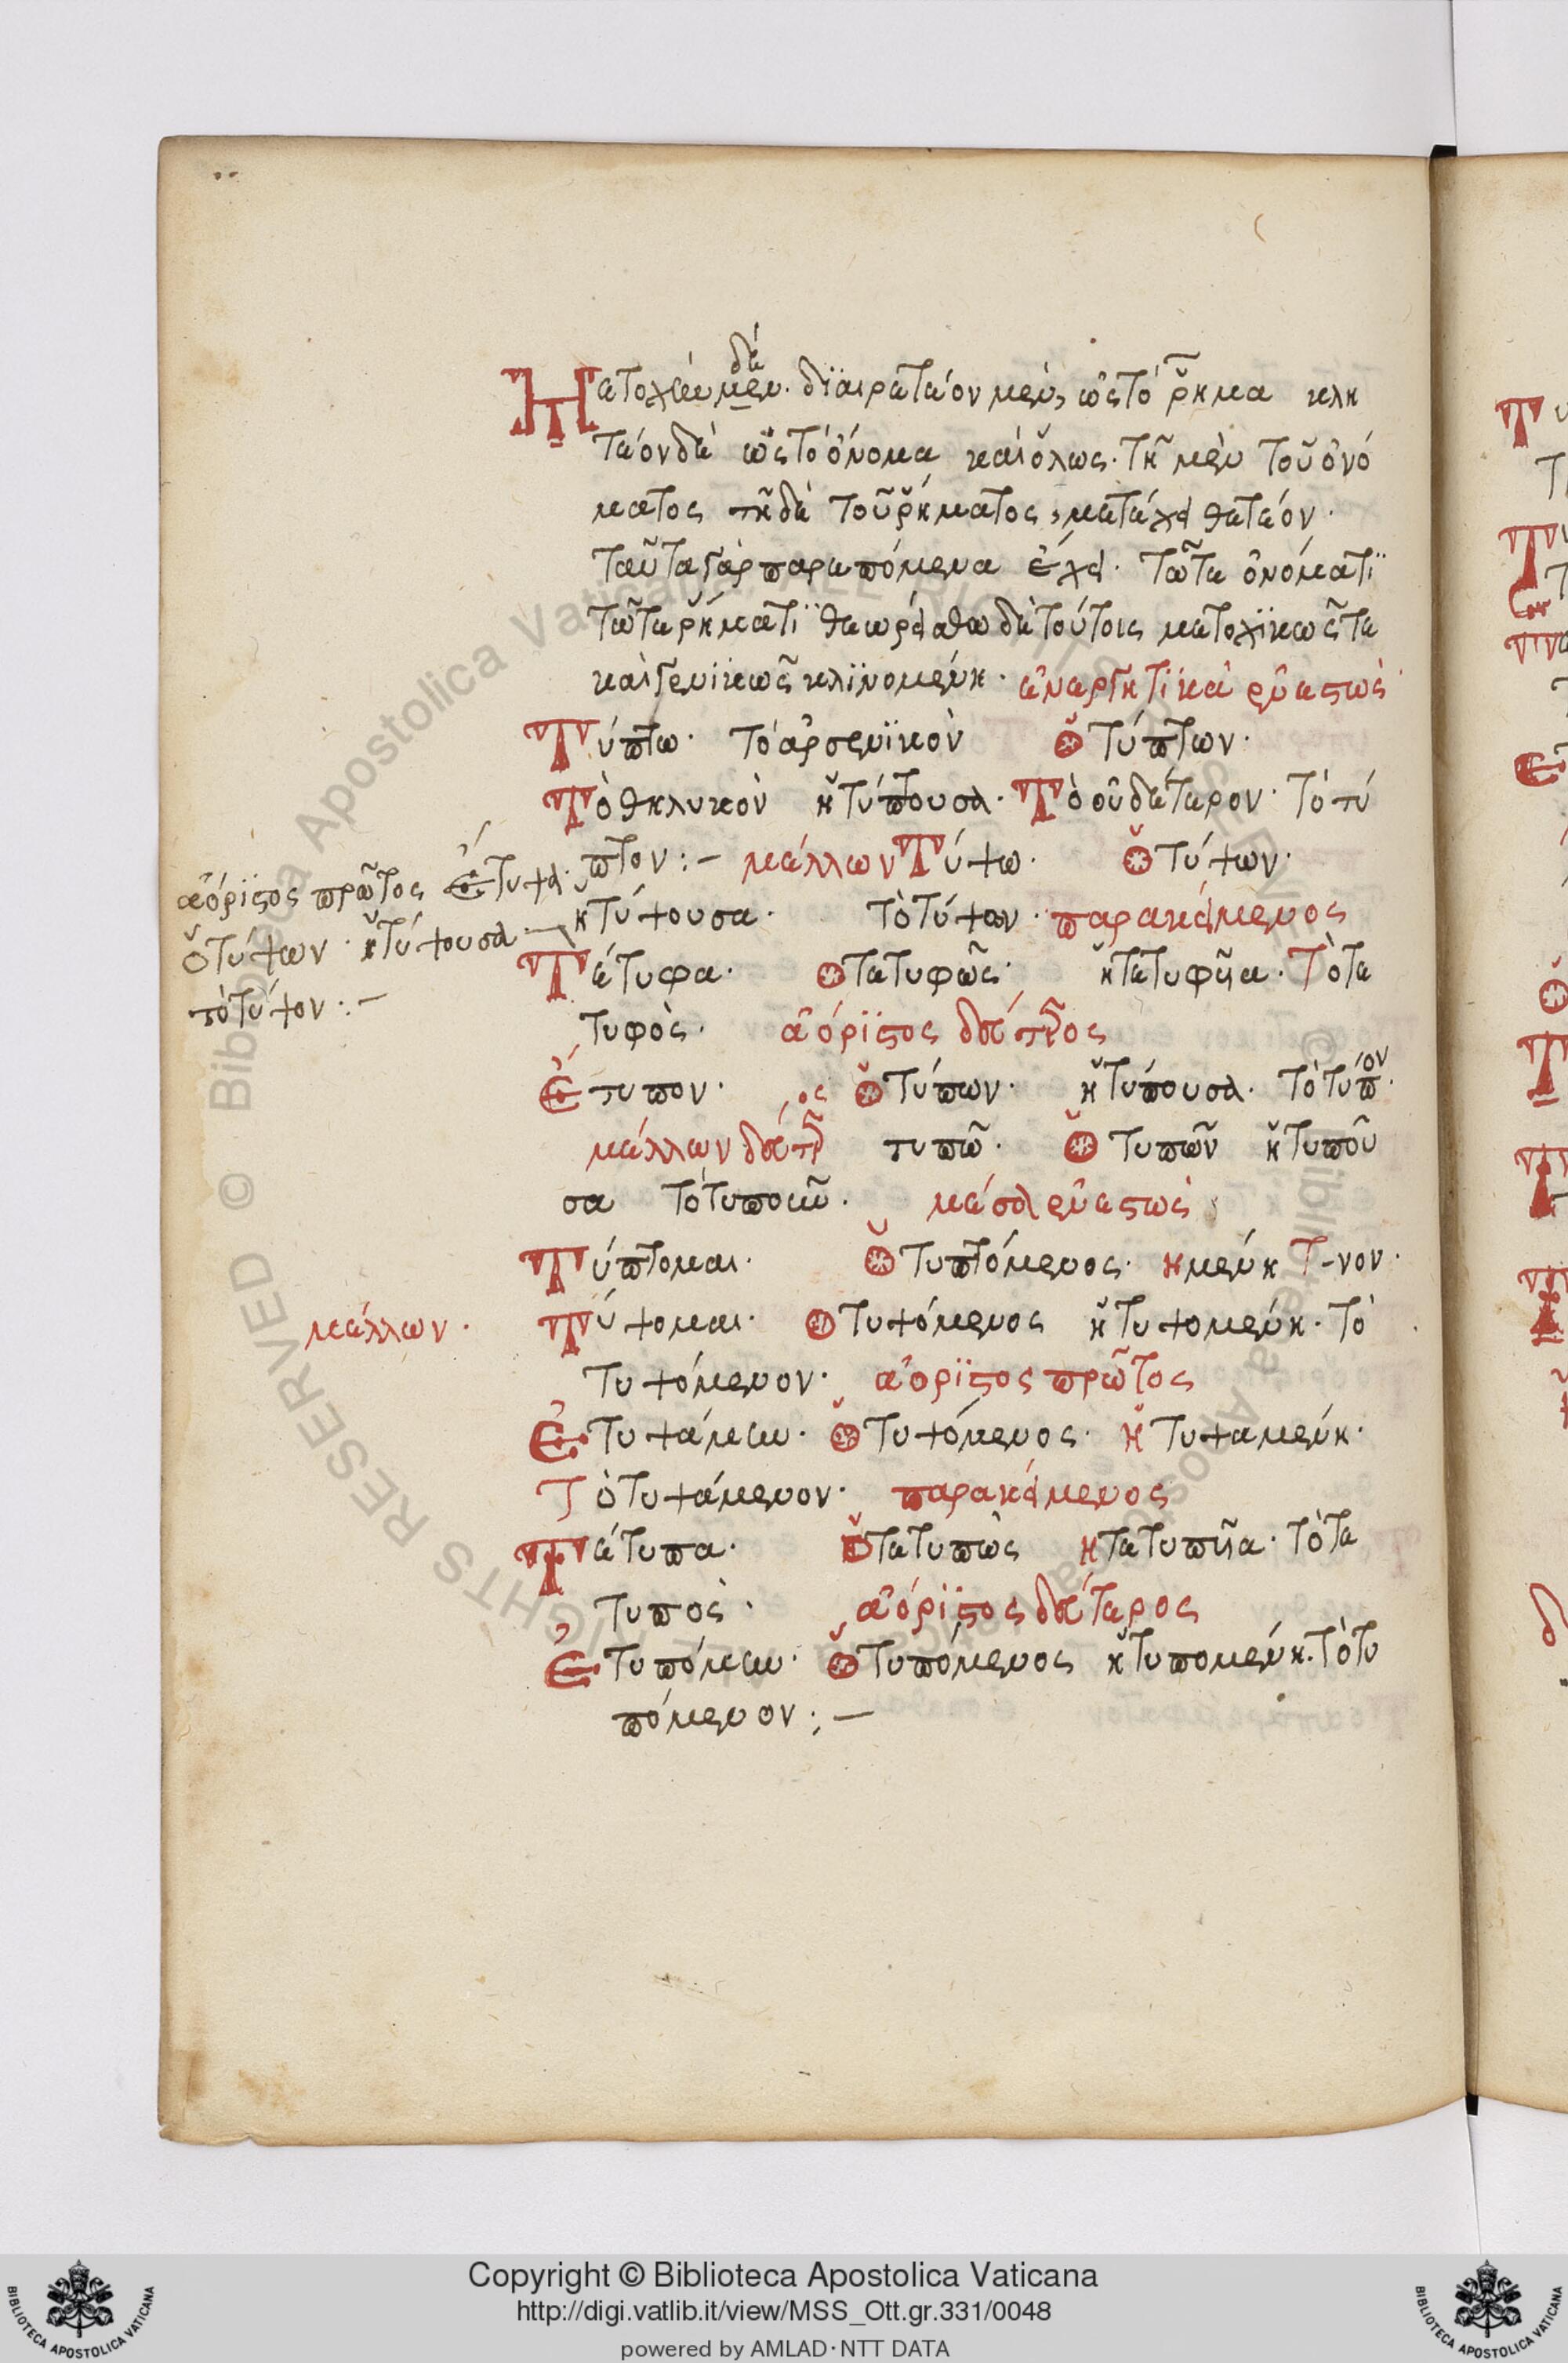 Ἡ μετοχὴ μὲν δὲ. διαιρετέον μὲν, ὡς τὸ ῥῆμα κλη
τέον δὲ ὡς τὸ ὄνομα καὶ ὅλως. τῆ μὲν τοῦ ὀνό
ματος τῆ δὲ τοῦ ῥήματος, μετέχει θετέον.
ταῦτα γὰρ παρεπόμενα ἔχει. τῶ τε ὀνόματι
τῶ τε ῥήματι θεωρείσθω δὲ τούτοις μετοχικῶς τε
καὶ γενικῶς κλινομένη. ἐνεργητικὰ ἐνεστὼς
Τύπτω. τὸ ἀρσενικὸν ὁ τύπτων.
Τὸ θηλυκὸν ἡ τύπτουσα. Τὸ οὐδέτερον. τὸ τύ
πτον :- μέλλων Τύψω. ὁ τύψων.
ἡ τύψουσα. τὸ τύψον. παρακείμενος
Τέτυφα. ὁ τετυφὼς. ἡ τετυφῦια. Τὸ τε
τυφὸς. ἀόριστος δεύτερος
Ἔτυπον. ὁ τύπων. ἡ τύπουσα. τὸ τύπον.
μέλλων δεύτερος τυπῶ. ὁ τυπῶν ἡ τυποῦ
σα τὸ τυποῦν. μέσα ἐνεστὼς
Τύπτομαι. ὁ τυπτόμενος. ἡ μένη Τ-νον.
Τύψομαι. ὁ τυψόμενος ἡ τυψομένη. τὸ
τυψόμενον. ἀόριστος πρῶτος
Ἐτυψάμην. ὁ τυψόμενος. ἡ τυψαμένη.
Τὸ τυψάμενον. παρακείμενος
Τέτυπα. ὁ τετυπὼς ἡ τετυπῦια. τὸ τε
τυπὸς. ἀόριστος δεύτερος
Ἐτυπόμην. ὁ τυπόμενος ἡ τυπομένη. τὸ τυ
πόμενον :-
ἀόριστος πρῶτος ἔτυψα.
ὁ τύψων. ἡ τύψουσα
τὸ τύψον :-
μέλλων.
Copyright © Biblioteca Apostolica Vaticana
http://digi.vatlib.it/view/MSS_Ott.gr.331/0048
powered by AMLAD·NTT DATA
BIBLIOTECA APOSTOLICA VATICANA
BIBLIOTECA APOSTOLICA VATICANA